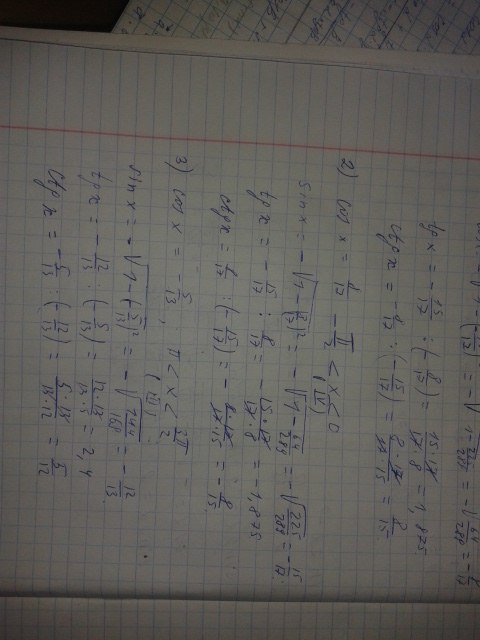 tg x = - 15/17 : (- 8/17) = 15·17/17·8 = 1,875
ctg x = - 8/17 : (- 15/17) = 8·17/17·15 = 8/15
2) cos x = 8/17 - π/2 < x < 0
(IV)
sin x = - √1-(8/17)² = - √1 - 64/289 = - √225/289 = - 15/17
tg x = - 15/17 : 8/17 = - 15·17/17·8 = - 1,875
ctg x = 8/17 : (- 15/17) = - 8·17/17·15 = - 8/15
3) cos x = - 5/13, π < x < 3π/2
(III)
sin x = - √1-(- 5/13)² = - √144/169 = - 12/13
tg x = - 12/13 : (- 5/13) = 12·13/13·5 = 2,4
ctg x = - 5/13 : (- 12/13) = 5·13/13·12 = 5/12